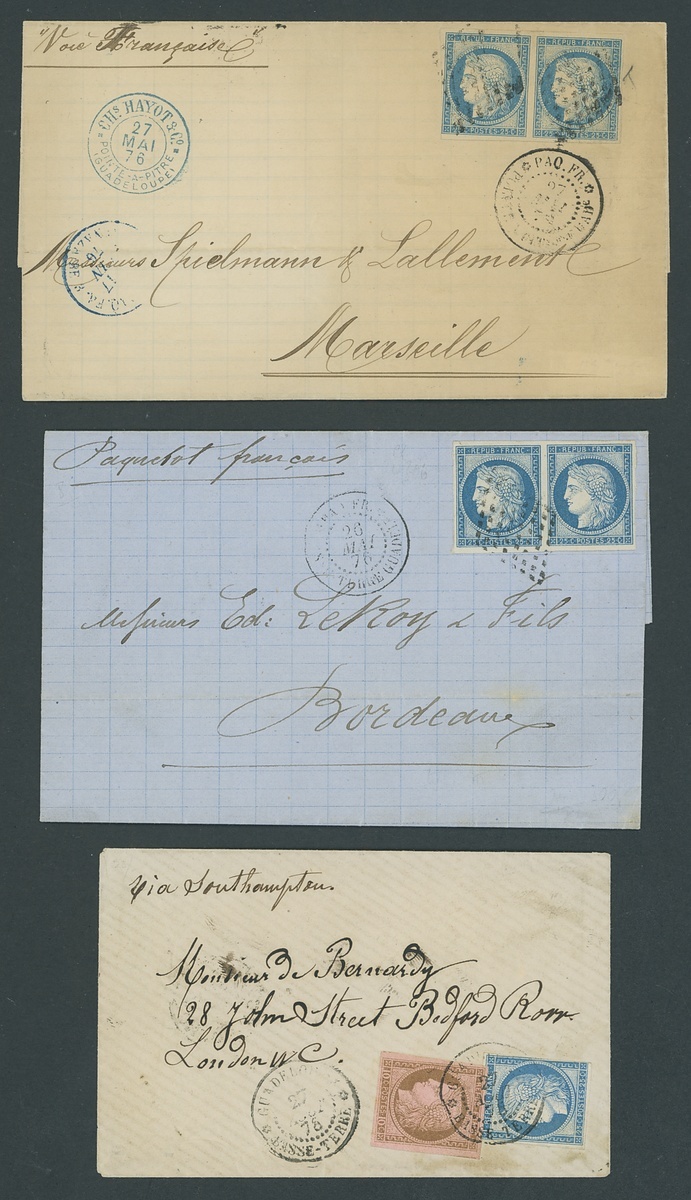 "Voie Française"
REPUB·FRANC
REPUB·FRANC
POSTES·25·C
POSTES·25·C
CHS HAYOT & CO
27
MAI
76
POINTE-A-PITRE
(GUADELOUPE)
PAQ. FR.
27
Messieurs Spielmann & Lallement
Marseille
Paquebot français
REPUB·FRANC
REPUB·FRANC
25·C·POSTES·25·C
25·C·POSTES·25·C
26
MAI
76
Messieurs Ed: LeRoy & Fils
Bordeaux
via Southampton.
Monsieur de Bernardy
28 John Street Bedford Row
London WC.
GUADELOUPE
27
76
BASSE-TERRE